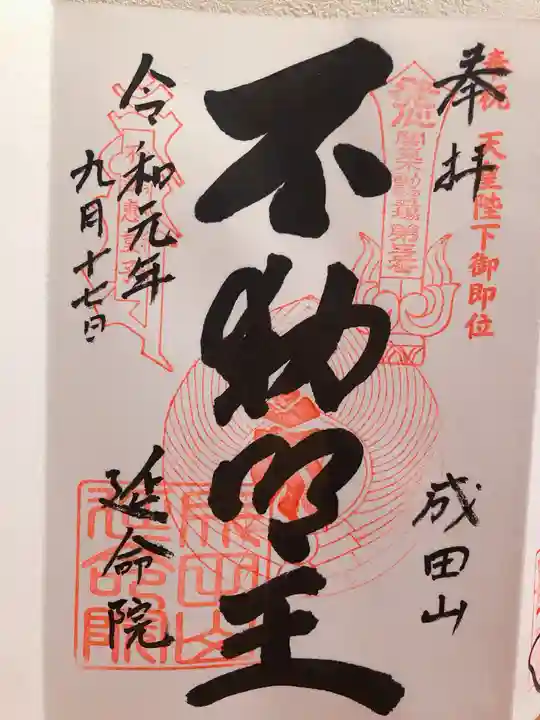 奉祝 天皇陛下御即位
奉拝
成田山
不動明王
令和元年
九月十七日
延命院